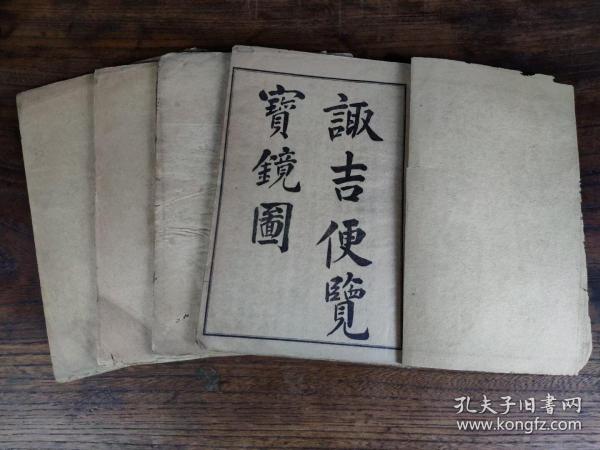 諏吉便覽
寶鏡圖
孔夫子旧书网
www.kongfz.com